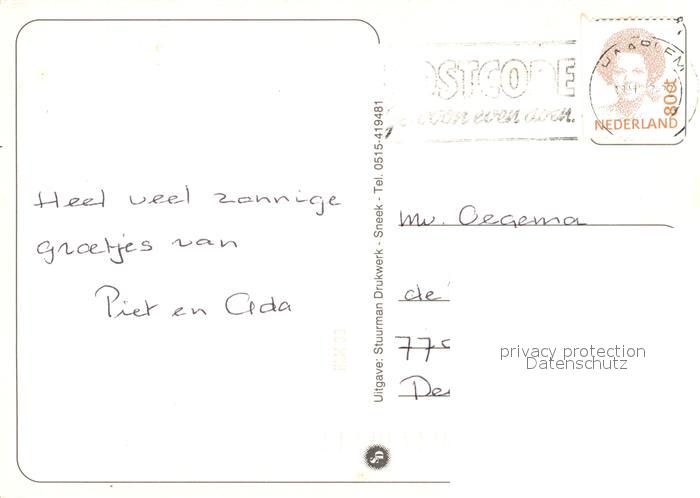 Heel veel zonnige
groetjes van
Piet en Ada
Uitgave: Stuurman Drukwerk - Sneek - Tel. 0515-419481
80ct
NEDERLAND
even doen.
mv. Oegema
de
privacy protection
Datenschutz